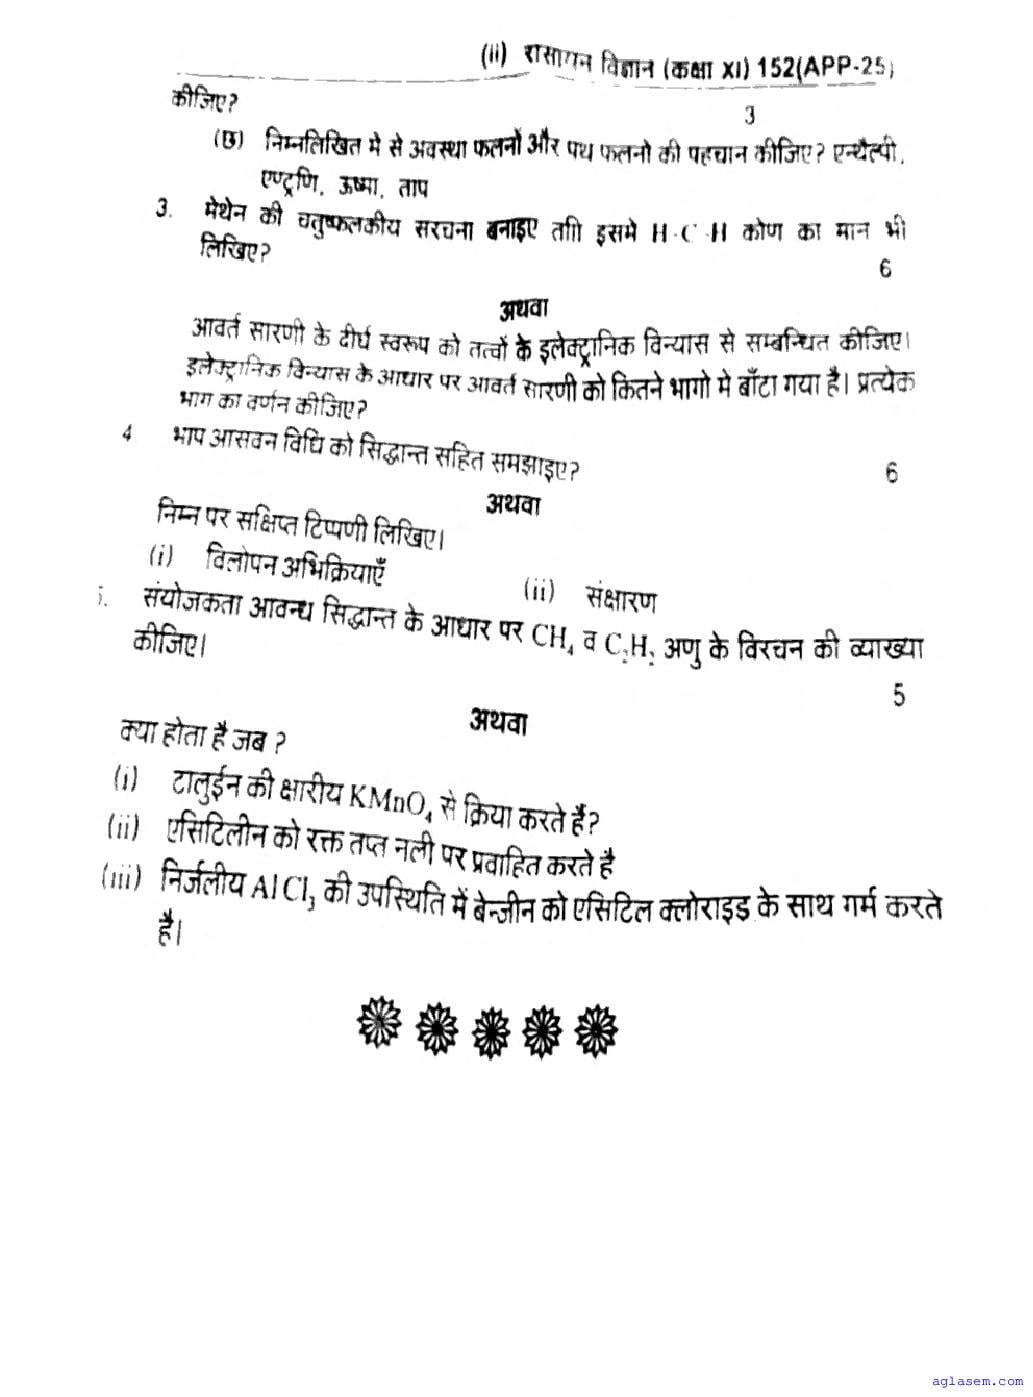 (ii) रासायन विज्ञान (कक्षा XI) 152(APP-25)
कीजिए?
3
(छ) निम्नलिखित मे से अवस्था फलनों और पथ फलनो की पहचान कीजिए? एन्थैल्पी,
एण्ट्रणि, ऊष्मा, ताप
3. मेथेन की चतुष्फलकीय सरचना बनाइए तााि इसमे H-C-H कोण का मान भी
लिखिए?
6
अथवा
आवर्त सारणी के दीर्घ स्वरूप को तत्वों के इलेक्ट्रानिक विन्यास से सम्बन्धित कीजिए।
इलेक्ट्रानिक विन्यास के आधार पर आवर्त सारणी को कितने भागो मे बाँटा गया है। प्रत्येक
भाग का वर्णन कीजिए?
4 भाप आसवन विधि को सिद्धान्त सहित समझाइए?
6
अथवा
निम्न पर सक्षिप्त टिप्पणी लिखिए।
(i) विलोपन अभिक्रियाएँ (ii) संक्षारण
5. संयोजकता आवन्ध सिद्धान्त के आधार पर CH₄ व C₂H₂ अणु के विरचन की व्याख्या
कीजिए।
5
अथवा
क्या होता है जब ?
(i) टालुईन की क्षारीय KMnO₄ से क्रिया करते हैं?
(ii) एसिटिलीन को रक्त तप्त नली पर प्रवाहित करते है
(iii) निर्जलीय AlCl₃ की उपस्थिति में बेन्जीन को एसिटिल क्लोराइड के साथ गर्म करते
है।
aglasem.com